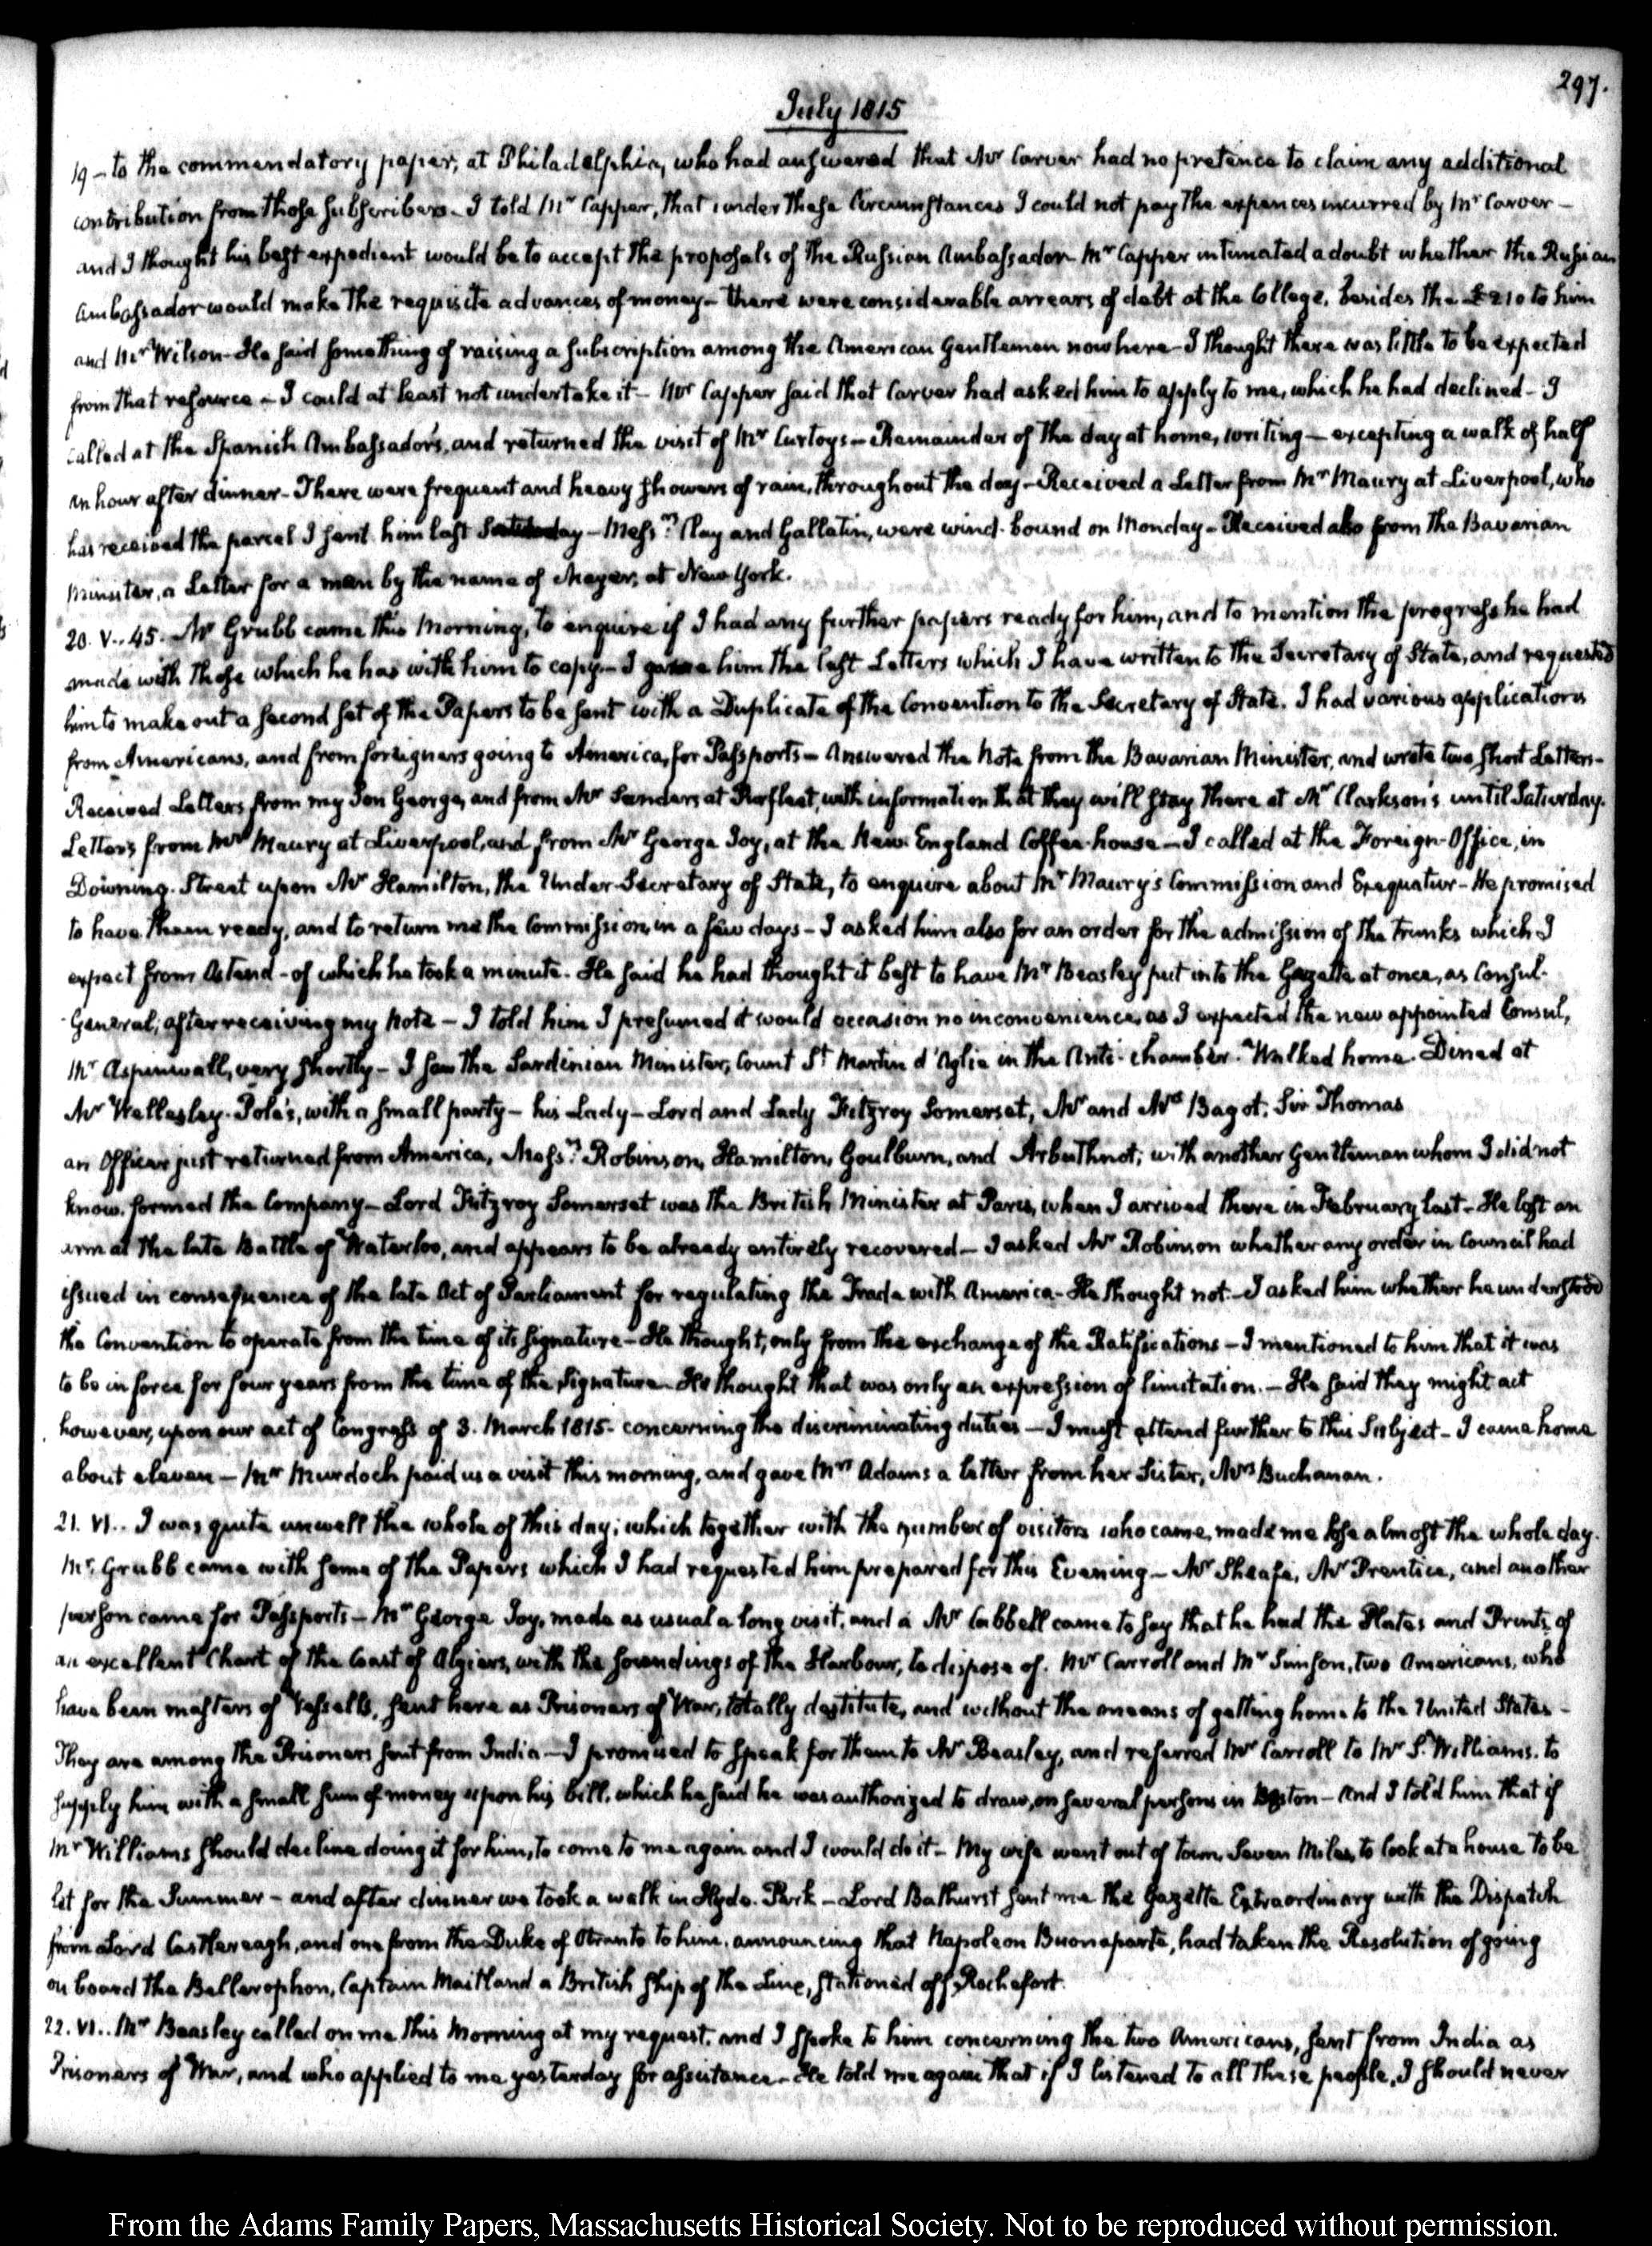 297.
July 1815
19 – to the commendatory paper, at Philadelphia, who had answered that Mr Carver had no pretence to claim any additional
contribution from those subscribers – I told Mr Capper, that under these Circumstances I could not pay the expences incurred by Mr Carver –
and I thought his best expedient would be to accept the proposals of the Russian Ambassador – Mr Capper intimated a doubt whether the Russian
Ambassador would make the requisite advances of money – there were considerable arrears of debt at the College, besides the £210 to him
and Mr Wilson – He said something of raising a subscription among the American Gentlemen now here – I thought there was little to be expected
from that resource – I could at least not undertake it – Mr Capper said that Carver had asked him to apply to me, which he had declined – I
called at the Spanish Ambassador's, and returned the visit of Mr Curtoys – Remainder of the day at home, writing – excepting a walk of half
an hour after dinner – There were frequent and heavy showers of rain, throughout the day – Received a Letter from Mr Maury at Liverpool, who
has received the parcel I sent him last Saturday – Messrs Clay and Gallatin, were wind-bound on Monday – Received also from the Bavarian
Minister, a Letter for a man by the name of Mayer, at New York.
20. V.. 45. Mr Grubb came this Morning, to enquire if I had any further papers ready for him, and to mention the progress he had
made with those which he has with him to copy – I gave him the last Letters which I have written to the Secretary of State, and requested
him to make out a second set of the Papers to be sent with a Duplicate of the Convention to the Secretary of State. I had various applications
from Americans, and from foreigners going to America, for Passports – Answered the Note from the Bavarian Minister, and wrote two short Letters –
Received Letters from my Son George, and from Mr Sanders at Purfleet, with information that they will stay there at Mr Clarkson's until Saturday.
Letters from Mr Maury at Liverpool, and from Mr George Joy, at the New England Coffee-house – I called at the Foreign-Office, in
Downing-Street upon Mr Hamilton, the Under-Secretary of State, to enquire about Mr Maury's Commission and Exequatur – He promised
to have them ready, and to return me the Commission, in a few days – I asked him also for an order for the admission of the trunks which I
expect from Ostend – of which he took a minute. He said he had thought it best to have Mr Beasley put into the Gazette at once, as Consul-
General, after receiving my Note – I told him I presumed it would occasion no inconvenience, as I expected the new appointed Consul,
Mr Aspinwall, very shortly – I saw the Sardinian Minister, Count St Martin d'Aglie in the Anti-chamber. Walked home. Dined at
Mr Wellesley-Pole's, with a small party – his Lady – Lord and Lady Fitzroy Somerset, Mr and Mrs Bagot, Sir Thomas
an Officer just returned from America, Messrs Robinson, Hamilton, Goulburn, and Arbuthnot; with another Gentleman whom I did not
know, formed the Company – Lord Fitzroy Somerset was the British Minister at Paris, when I arrived there in February last – He lost an
arm at the late Battle of Waterloo, and appears to be already entirely recovered – I asked Mr Robinson whether any order in Council had
issued in consequence of the late Act of Parliament for regulating the Trade with America – He thought not – I asked him whether he understood
the Convention to operate from the time of its signature – He thought, only from the exchange of the Ratifications – I mentioned to him that it was
to be in force for four years from the time of the signature – He thought that was only an expression of limitation. – He said they might act
however, upon our act of Congress of 3. March 1815 – concerning the discriminating duties – I must attend further to this Subject – I came home
about eleven – Mr Murdoch paid us a visit this morning, and gave Mrs Adams a letter from her Sister, Mrs Buchanan.
21. VI.. I was quite unwell the whole of this day; which together with the number of visitors who came, made me lose almost the whole day.
Mr Grubb came with some of the Papers which I had requested him prepared for this Evening – Mr Sheafe, Mr Prentice, and another
person came for Passports – Mr George Joy, made as usual a long visit, and a Mr Cabbell came to say that he had the Plates and Prints of
an excellent Chart of the Coast of Algiers, with the soundings of the Harbour, to dispose of. Mr Carroll and Mr Simson, two Americans, who
have been masters of Vessells, sent here as Prisoners of War, totally destitute, and without the means of getting home to the United States –
They are among the Prisoners sent from India – I promised to speak for them to Mr Beasley, and referred Mr Carroll to Mr S. Williams, to
supply him with a small sum of money upon his bill, which he said he was authorized to draw, on several persons in Boston – And I told him that if
Mr Williams should decline doing it for him, to come to me again and I would do it – My wife went out of town, Seven Miles, to look at a house to be
let for the Summer – and after dinner we took a walk in Hyde-Park – Lord Bathurst sent me the Gazette Extraordinary with the Dispatch
from Lord Castlereagh, and one from the Duke of Otranto to him, announcing that Napoleon Buonaparte, had taken the Resolution of going
on board the Bellerophon, Captain Maitland a British ship of the Line, stationed off Rochefort.
22. VI.. Mr Beasley called on me this Morning at my request, and I spoke to him concerning the two Americans, sent from India as
Prisoners of War, and who applied to me yesterday for assistance – He told me again that if I listened to all these people, I should never
From the Adams Family Papers, Massachusetts Historical Society. Not to be reproduced without permission.